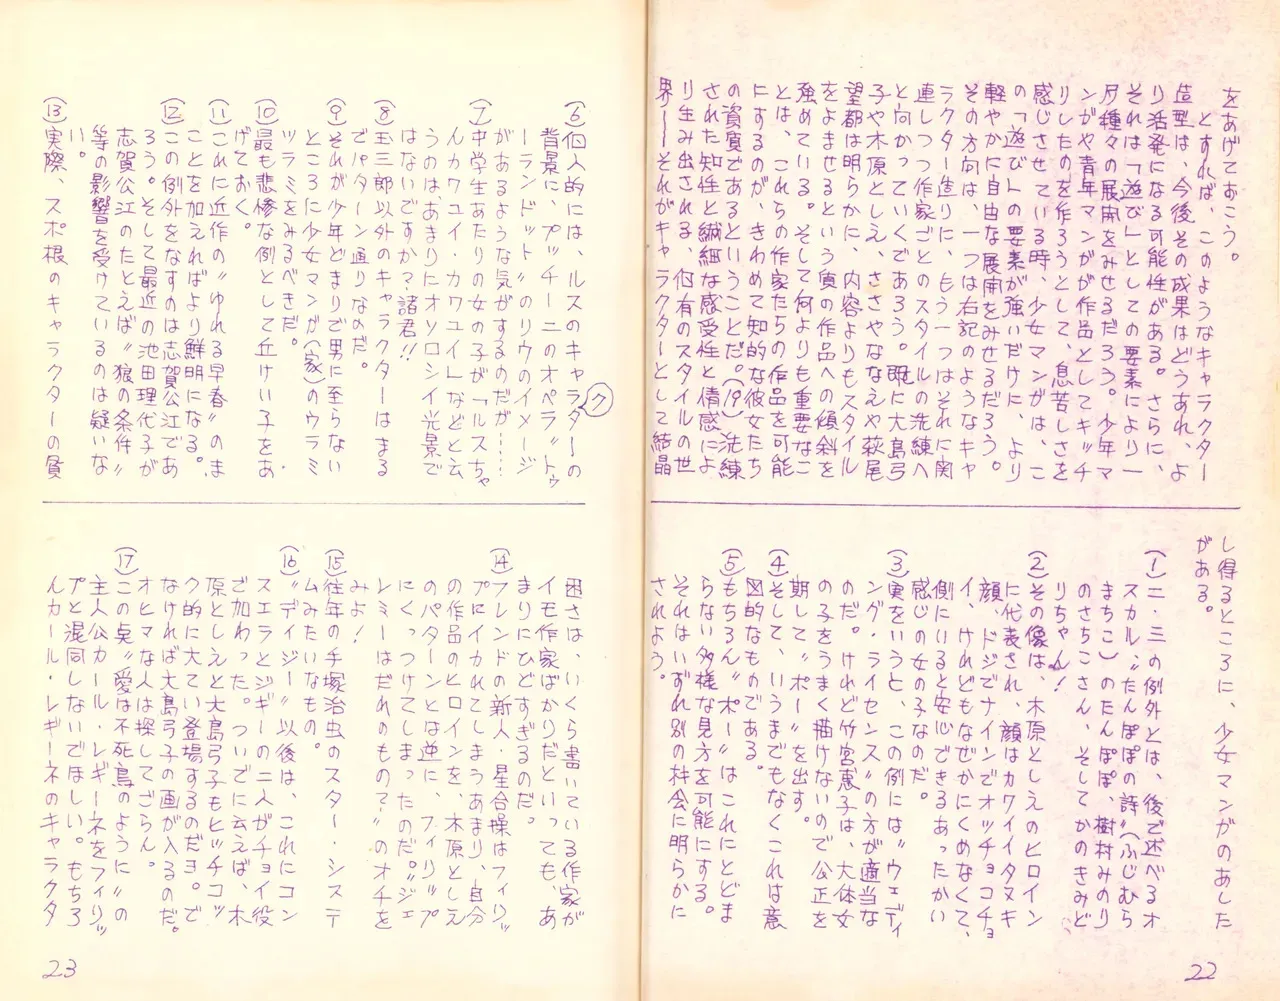 をあげておこう。
とすれば、このようなキャラクター
造型は、今後その成果はどうあれ、よ
り活発になる可能性がある。さらに、
それは「遊び」としての要素により一
層種々の展開をみせるだろう。少年マ
ンガや青年マンガが作品としてキッチ
リしたのを作ろうとして、息苦しさを
感じさせている時、少女マンガは、こ
の「遊び」の要素が強いだけに、より
軽やかに自由な展開をみせるだろう。
その方向は、一つは右記のようなキャ
ラクター造りに、もう一つはそれに関
連しつつ作家ごとのスタイルの洗練へ
と向かっていくであろう。既に大島弓
子や木原としえ、ささやななえや萩尾
望都は明らかに、内容よりもスタイル
をよませるという質の作品への傾斜を
強めている。そして何よりも重要なこ
とは、これらの作家たちの作品を可能
にするのが、きわめて知的な彼女たち
の資質であるということだ。(19)洗練
された知性と繊細な感受性と情感によ
り生み出される、個有のスタイルの世
界——それがキャラクターとして結晶
し得るところに、少女マンガのあした
がある。
(1)二・三の例外とは、後で述べるオ
スカル、〝たんぽぽの詩〟(ふじむら
まちこ)のたんぽぽ、樹村みのり
のさちこさん、そしてかのきみど
りちゃん!
(2)その像は、木原としえのヒロイン
に代表され、顔はカワイイタヌキ
顔、ドジでナインでオッチョコチョ
イ、けれどもなぜかにくめなくて、
側にいると安心できるあったかい
感じの女の子なのだ。
(3)実をいうと、この例には〝ウェディ
ング・ライセンス〟の方が適当な
のだ。けれど竹宮恵子は、大体女
の子をうまく描けないので公正を
期して〝ポー〟を出す。
(4)そして、いうまでもなくこれは意
図的なものである。
(5)もちろん〝ポー〟はこれにとどま
らない多様な見方を可能にする。
それはいずれ別の機会に明らかに
されよう。
22
(6)個人的には、ルスのキャラターの
ク
背景に、プッチーニのオペラ〝トゥ
ーランドット〟のリウのイメージ
があるような気がするのだが……
(7)中学生あたりの女の子が「ルスちゃ
んカワユイ・カワユイ」などと云
うのは、あまりにオソロシイ光景で
はないですか?諸君!!
(8)玉三郎以外のキャラクターはまる
でパターン通りなのだ。
(9)それが少年どまりで男に至らない
ところに少女マンガ(家)のウラミ
ツラミをみるべきだ。
(10)最も悲惨な例として丘けい子をあ
げておく。
(11)これに近作の〝ゆれる早春〟のま
ことを加えればより鮮明になる。
(12)この例外をなすのは志賀公江であ
ろう。そして最近の池田理代子が
志賀公江のたとえば〝狼の条件〟
等の影響を受けているのは疑いな
い。
(13)実際、スポ根のキャラクターの貧
困さは、いくら書いている作家が
イモ作家ばかりだといっても、あ
まりにひどすぎるのだ。
(14)フレンドの新人・星合操はフィリッ
プにイカれてしまうあまり、自分
の作品のヒロインを、木原としえ
のパターンとは逆に、フィリップ
にくっつけてしまったのだ。〝ジェ
レミーはだれのもの?〟のオチを
みよ!
(15)往年の手塚治虫のスター・システ
ムみたいなもの。
(16)〝デイジー〟以後は、これにコン
スエラとジギーの二人がチョイ役
で加わった。ついでに云えば、木
原としえと大島弓子もヒッチコッ
ク的に大てい登場するのだヨ。で
なければ大島弓子の画が入るのだ。
オヒマな人は探してごらん。
(17)この点〝愛は不死鳥のように〟の
主人公カール・レギーネをフィリッ
プと混同しないでほしい。もちろ
んカール・レギーネのキャラクタ
23